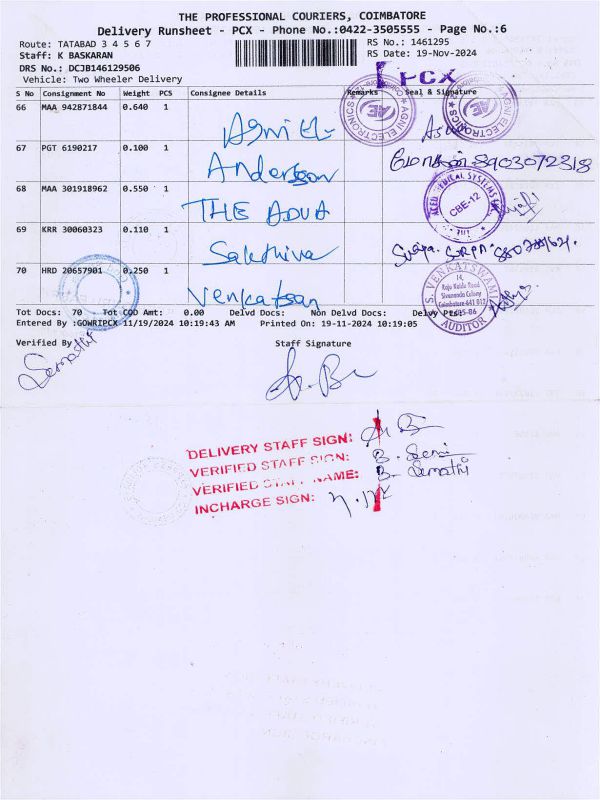 THE PROFESSIONAL COURIERS, COIMBATORE
Delivery Runsheet - PCX - Phone No.:0422-3505555 - Page No.:6
Route: TATABAD 3 4 5 6 7
RS No.: 1461295
Staff: K BASKARAN
RS Date: 19-Nov-2024
DRS No.: DCJB146129506
Vehicle: Two Wheeler Delivery
PCX
S No Consignment No Weight PCS Consignee Details Remarks Seal & Signature
66 MAA 942871844 0.640 1
AGNI ELECTRONICS
AE
AGNI ELECTRONICS
AE
67 PGT 6190217 0.100 1
Anderson
8903072318
68 MAA 301918962 0.550 1
THE ADVA
CBE-12
69 KRR 30060323 0.110 1
Sakthiva
70 HRD 20657901 0.250 1
Venkatsan
S. VENKATSWAMI
14,
Raju Naidu Road
Sivananda Colony
Coimbatore-641 012
AUDITOR
Tot Docs: 70 Tot COD Amt: 0.00 Delvd Docs: Non Delvd Docs: Delvy Pts:
Entered By :GOWRIPCX 11/19/2024 10:19:43 AM Printed On: 19-11-2024 10:19:05
Verified By Staff Signature
DELIVERY STAFF SIGN:
VERIFIED STAFF SIGN:
VERIFIED STAFF NAME:
INCHARGE SIGN: